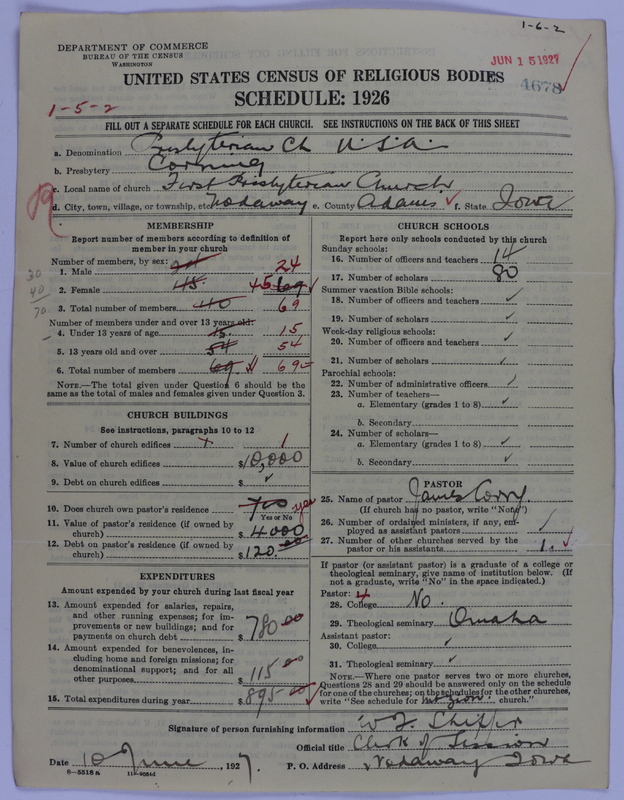 1-6-2
DEPARTMENT OF COMMERCE
BUREAU OF THE CENSUS
WASHINGTON
JUN 15 1927
4678
UNITED STATES CENSUS OF RELIGIOUS BODIES
SCHEDULE: 1926
1-5-2
FILL OUT A SEPARATE SCHEDULE FOR EACH CHURCH. SEE INSTRUCTIONS ON THE BACK OF THIS SHEET
a. Denomination Presbyterian Ch U.S.A.
b. Presbytery Corning
c. Local name of church First Presbyterian Church
d. City, town, village, or township, etc. Nodaway e. County Adams ✓ f. State Iowa
MEMBERSHIP
Report number of members according to definition of
member in your church
Number of members, by sex:
1. Male 24 24
2. Female 45 45 69 ✓
3. Total number of members 40 69
30
40
70
Number of members under and over 13 years old:
4. Under 13 years of age 15 15
5. 13 years old and over 54 54
6. Total number of members 69 69
NOTE.—The total given under Question 6 should be the
same as the total of males and females given under Question 3.
CHURCH BUILDINGS
See instructions, paragraphs 10 to 12
7. Number of church edifices 1
8. Value of church edifices $10,000
9. Debt on church edifices $ ✓
10. Does church own pastor's residence yes
Yes or No
11. Value of pastor's residence (if owned by
church) $4000
12. Debt on pastor's residence (if owned by
church) $120.00
EXPENDITURES
Amount expended by your church during last fiscal year
13. Amount expended for salaries, repairs,
and other running expenses; for im-
provements or new buildings; and for
payments on church debt $780.00
14. Amount expended for benevolences, in-
cluding home and foreign missions; for
denominational support; and for all
other purposes $115.00
15. Total expenditures during year $895.00 ✓
CHURCH SCHOOLS
Report here only schools conducted by this church
Sunday schools:
16. Number of officers and teachers 14
17. Number of scholars 80
Summer vacation Bible schools:
18. Number of officers and teachers ✓
19. Number of scholars ✓
Week-day religious schools:
20. Number of officers and teachers ✓
21. Number of scholars ✓
Parochial schools:
22. Number of administrative officers
23. Number of teachers—
a. Elementary (grades 1 to 8) ✓
b. Secondary
24. Number of scholars—
a. Elementary (grades 1 to 8) ✓
b. Secondary ✓
PASTOR
25. Name of pastor James Corry
(If church has no pastor, write "None")
26. Number of ordained ministers, if any, em-
ployed as assistant pastors
27. Number of other churches served by the
pastor or his assistants 1. ✓
If pastor (or assistant pastor) is a graduate of a college or
theological seminary, give name of institution below. (If
not a graduate, write "No" in the space indicated.)
Pastor: 4
28. College No.
29. Theological seminary Omaha
Assistant pastor:
30. College ✓
31. Theological seminary ✓
NOTE.—Where one pastor serves two or more churches,
Questions 28 and 29 should be answered only on the schedule
for one of the churches; on the schedules for the other churches,
write "See schedule for Mt Zion church."
Signature of person furnishing information
Official title Clerk of Session
Date 10 June, 1927. P. O. Address Nodaway Iowa
8—5518 a